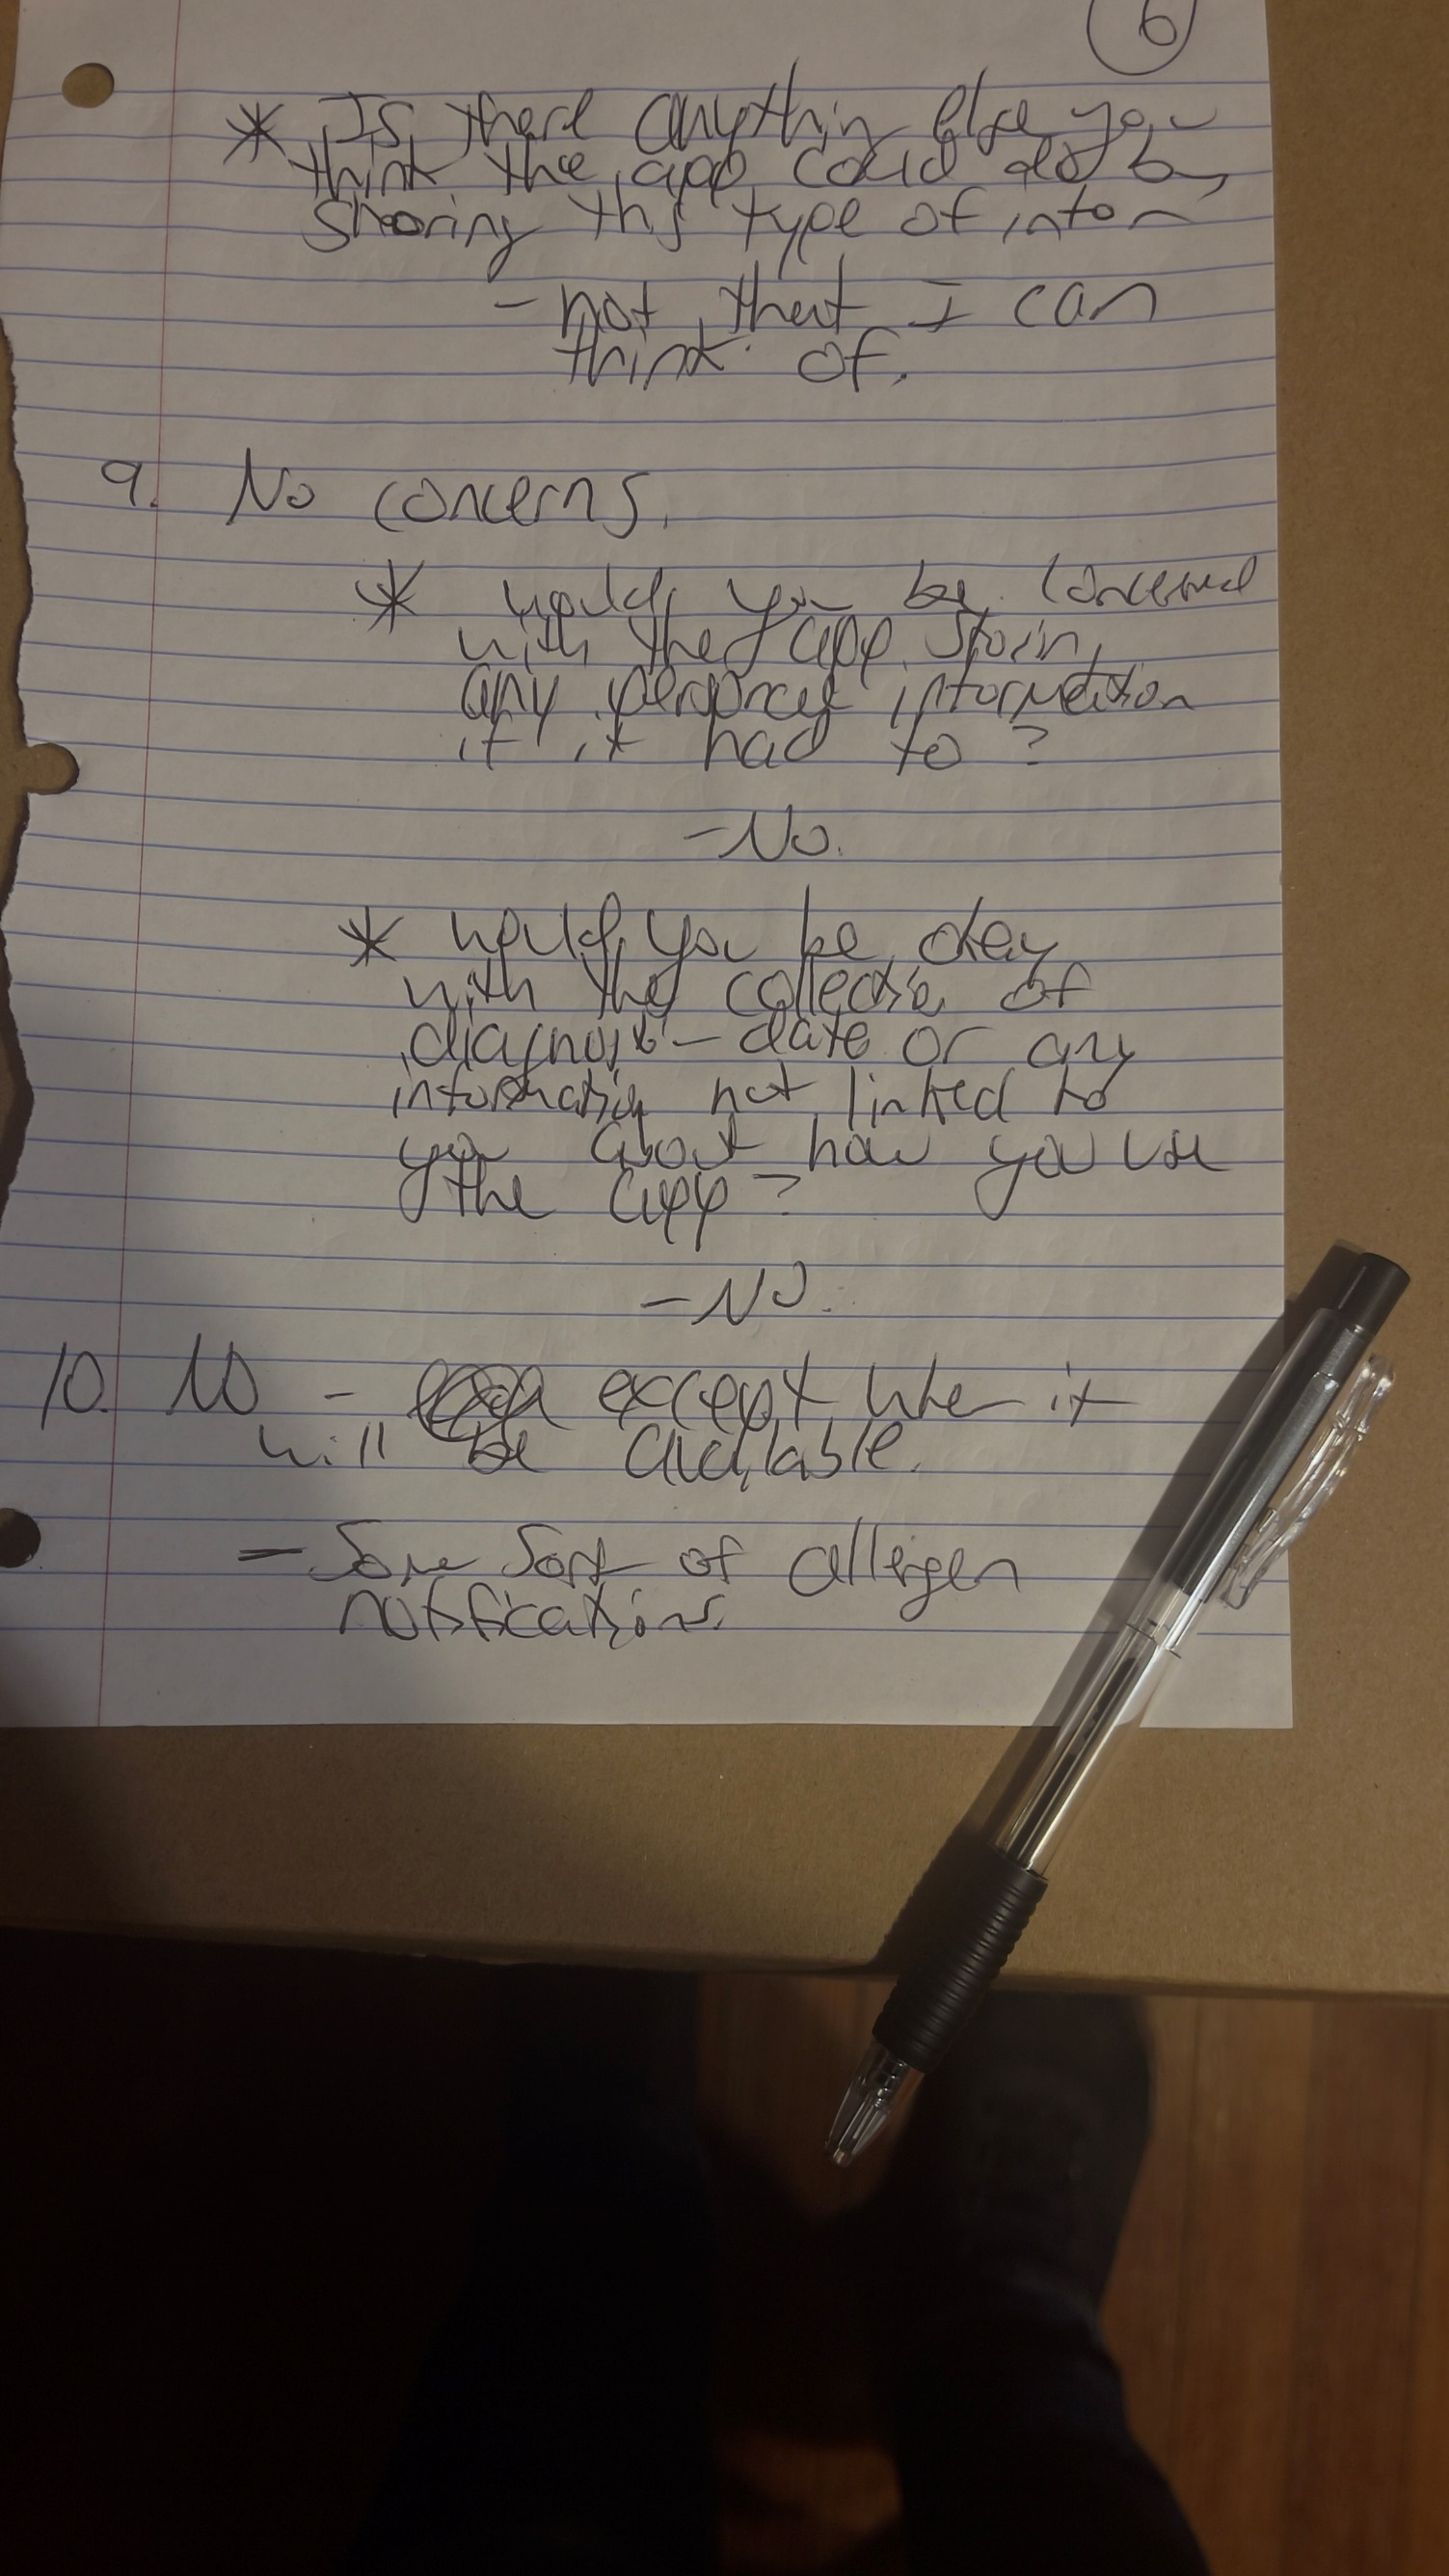 6
* Is there anything else you
think the app could do by
sharing this type of infor
- not that I can
think of.
9. No concerns.
* would you be concerned
with the app storing
any personal information
if it had to?
- No.
* would you be okay
with the collection of
diagnostic date or any
information not linked to
you about how you use
the app?
- No.
10. No - except when it
will be available.
- Some sort of allergen
notifications.